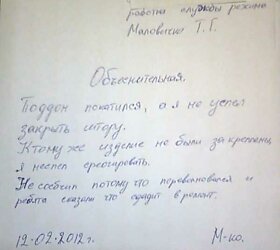 работка службы режима
Маловичко Т. Г.
Объеснительная.
Поддон покатился, а я не успел
закрыть штору.
Ктому же изделие не были за креплены,
я неспел среогировать.
Не сообчил потому что переволновался и
ребята сказали что сдадут в ремонт.
12-02-2012г.
М-ко.